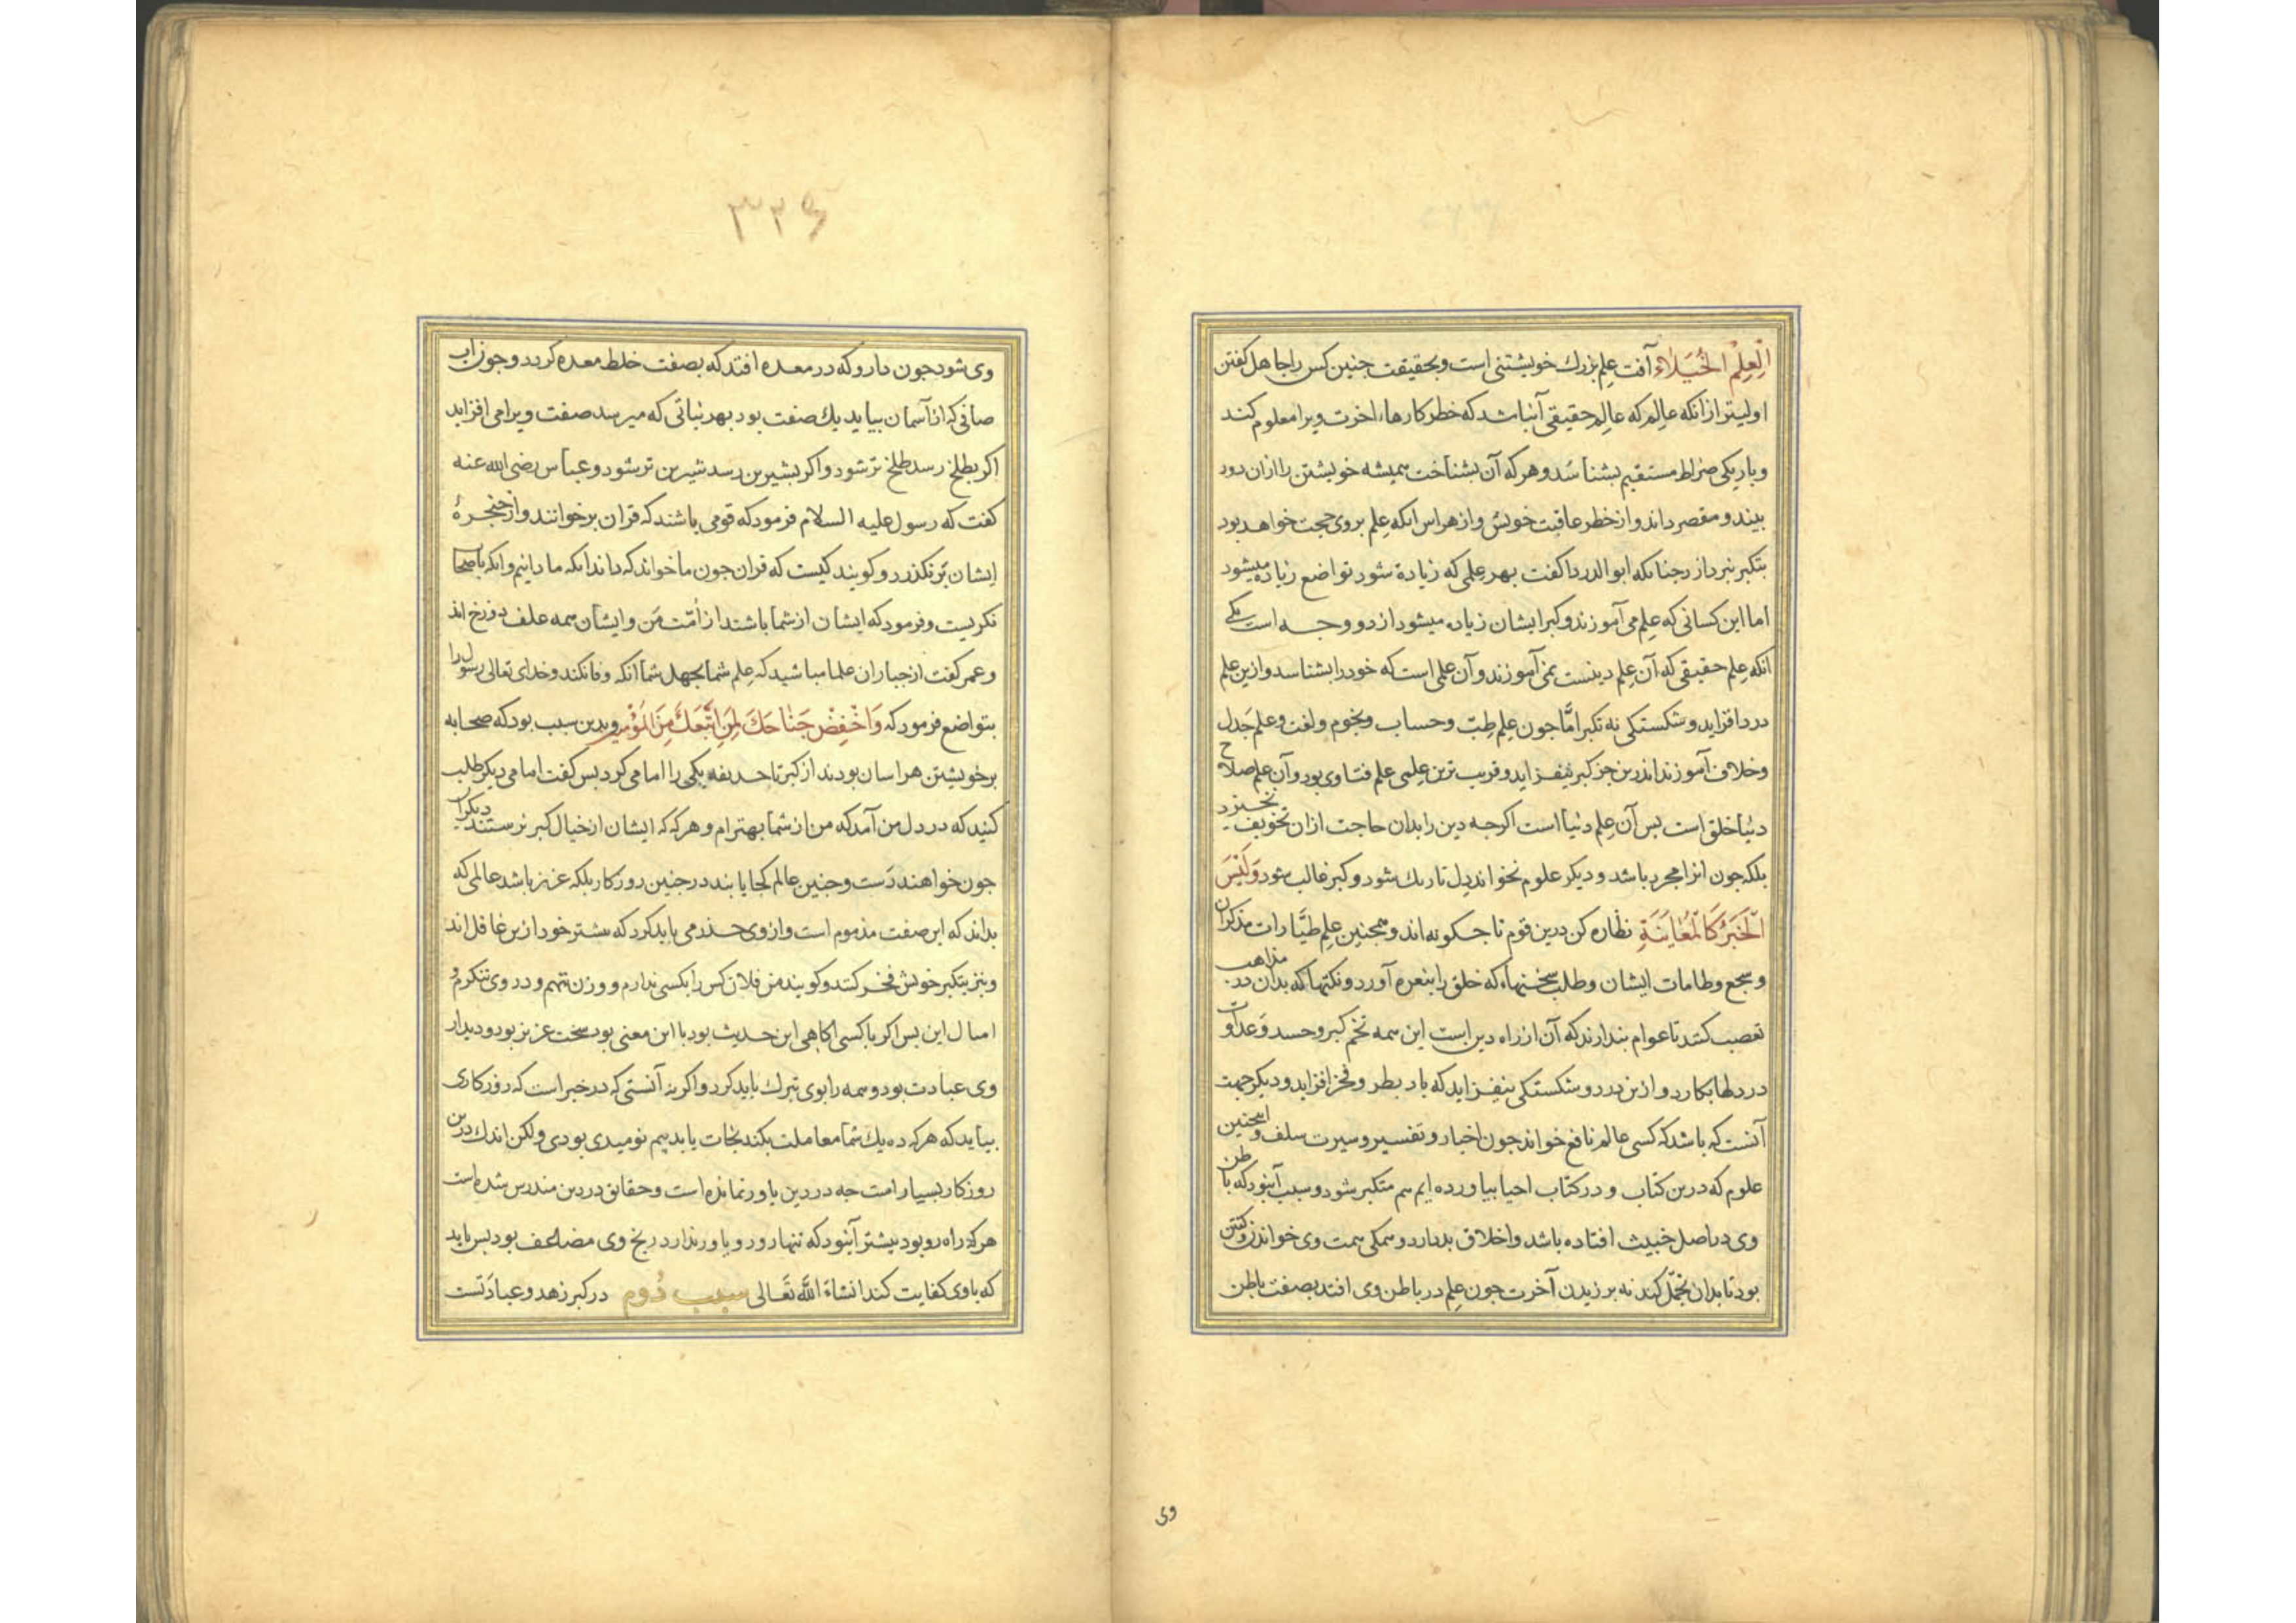 العِلْمِ الخُيَلاء آفت علم بزرك خويشتنى است وبحقيقت جنين كس را جاهل كفتن
اوليتر از انكه عالم كه عالم حقيقى آنباشد كه خطر كارهاء اخرت ويرا معلوم كند
وباريكى صراط مستقيم بشناسد وهر كه آن بشناخت هميشه خويشتن را ازان دور
بيند ومقصر داند واز خطر عاقبت خويش واز هراس انكه علم بروى حجت خواهد بود
بتكبر نبردازد جنانكه ابو الدردا كفت بهر علمى كه زيادة شود تواضع زياده ميشود
اما اين كسانى كه علم مى آموزند وكبر ايشان زياده ميشود از دو وجه است يكى
انكه علم حقيقى كه آن علم دينست نمى آموزند وآن علمى است كه خود را بشناسد وازين علم
درد افزايد وشكستكى نه تكبر امّا جون علم طبّ وحساب ونجوم ولغت وعلم جَدل
وخلاف آموزند اندرين جز كبر نيفزايد وقريب ترين علمى علم فتاوى بود وآن علم صلاح
دنيا خلق است بس آن علم دنيا است اكرجه دين را بدان حاجت ازان تخويف نخيزد
بلكه جون انرا مجرد باشد وديكر علوم نخواند دل تاريك شود وكبر غالب شود وَلَيْسَ
الْخَبَرُ كَالْمُعَايَنَةِ نظاره كن درين قوم تا جكونه اند وهمجنين علم طيّارات مذكران
وسجع وطامات ايشان وطلب سخنهاء كه خلق را بنعره آورد ونكتها كه بدان در مذاهب
تعصب كنند تا عوام بندارند كه آن از راه دين است اين همه تخم كبر وحسد وعداوت
در دلها بكارد وازين درد وشكستكى نيفزايد كه باد بطر وفخر افزايد وديكر جهت
آنست كه باشد كه كسى عالم نافع خواند جون اخبار وتفسير وسيرت سلف وامجنين
علوم كه درين كتاب ودر كتاب احيا بياورده ايم هم متكبر شود وسبب آنبود كه باطن
وى در اصل خبيث افتاده باشد واخلاق بد دارد وهمكى همت وى خواندن وكفتن
بود تا بدان تجمّل كند نه برزيدن آخرت جون علم در باطن وى افتد بصفت باطن
وى
٣٣٤
وى شود جون دارو كه در معده افتد كه بصفت خلط معده كردد وجون آب
صافى كه از آسمان بيايد يك صفت بود بهر نباتى كه ميرسد صفت ويرا مى افزايد
اكر بطلخ رسد طلخ تر شود واكر بشيرين رسد شيرين تر شود وعباس رضى الله عنه
كفت كه رسول عليه السلام فرمود كه قومى باشند كه قران برخوانند واز حنجرهٔ
ايشان بر نكذرد وكويند كيست كه قران جون ما خواند كه داند انكه ما دانيم وانكه باصحا
نكريست وفرمود كه ايشان از شما باشند از امّت من وايشان همه علف دوزخ اند
وعمر كفت از جباران علما مباشيد كه علم شما بجهل شما انكه وفا نكند وخداى تعالى رسول را
بتواضع فرمود كه وَاخْفِضْ جَنَاحَكَ لِمَنِ اتَّبَعَكَ مِنَ الْمُؤْمِنِينَ وبدين سبب بود كه صحابه
برخويشتن هراسان بودند از كبر تا حديفه يكى را امامى كرد بس كفت امامى ديكر طلب
كنيد كه در دل من آمد كه من از شما بهترام وهر كه كه ايشان از خيال كبر نرستند ديكران
جون خواهند رَست وجنين عالم كجا يابند در جنين روزكار بلكه عزيز باشد عالمى كه
بداند كه اين صفت مذموم است وازوى حذر مى بايد كرد كه بيشتر خود ازين غافل اند
ونيز بتكبر خويش فخر كنند وكويند من فلان كس را بكسى ندارم ووزن ننهم ودر وى ننكرم و
امثال اين بس اكر با كسى اكاهى اين حديث بود با اين معنى بود سخت عزيز بود وديدار
وى عبادت بود وهمه را بوى تبرك بايد كرد واكر نه آنستى كه در خبر است كه روزكارى
بيايد كه هر كه ده يك شما معاملت بكند نجات يابد بيم نوميدى بودى ولكن اندك درين
روزكار بسيار است جه در دين ياور نمانده است وحقايق در دين مندرس شده است
هر كه راه رود بيشتر آنبود كه تنها رود وياور ندارد رنج وى مضاعف بود بس بايد
كه باوى كفايت كند انشاءَ اللّٰه تَعَالى سبب دُوم در كبر زهد وعبادَتست